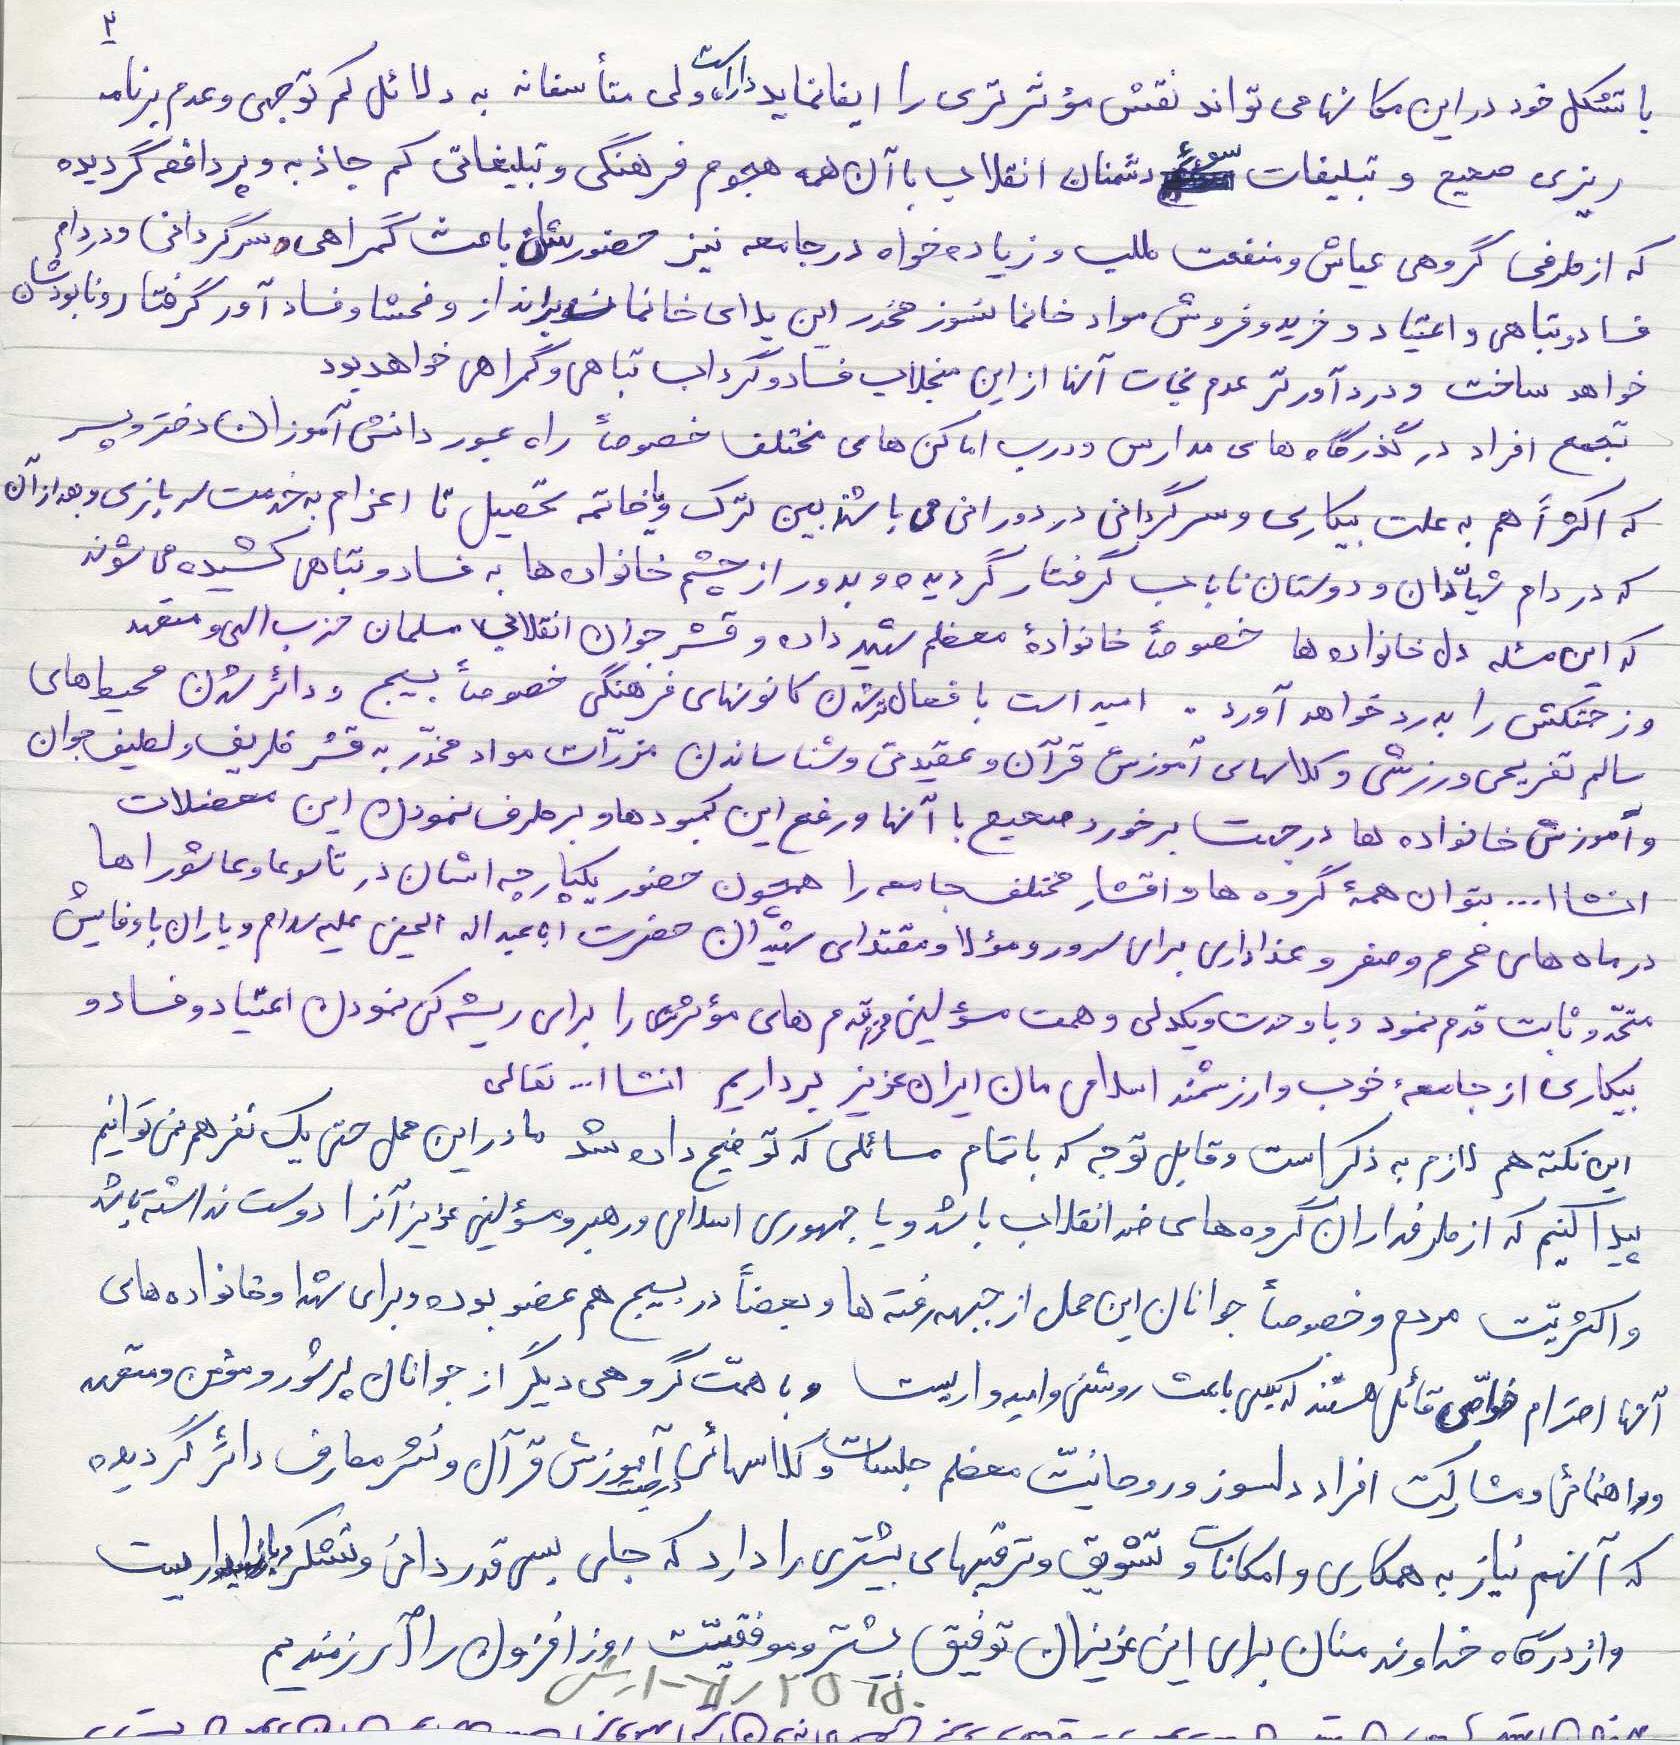 ۲
با تشکل خود در این مکانها می تواند نقش مؤثرتری را ایفا نماید داراست ولی متأسفانه به دلائل کم توجهی و عدم برنامه
ریزی صحیح و تبلیغات سوء دشمنان انقلاب با آن همه هجوم فرهنگی و تبلیغاتی کم جاذبه و پردافعه گردیده
که از طرفی گروهی عیاش و منفعت طلب و زیاده خواه در جامعه نیز حضورشان باعث گمراهی و سرگردانی و در دام
فساد و تباهی و اعتیاد و خرید و فروش مواد خانمانسوز مخدر این بلای خانمان برانداز و فحشا و فساد آور گرفتار و نابودشان
خواهد ساخت و درد آورتر عدم نجات آنها از این منجلاب فساد و گرداب تباهی و گمراهی خواهد بود
تجمع افراد در گذرگاه های مدارس و درب اماکن های مختلف خصوصاً راه عبور دانش آموزان دختر و پسر
که اکثراً هم به علت بیکاری و سرگردانی در دورانی می باشند بین ترک و یا خاتمه تحصیل تا اعزام به خدمت سربازی و بعد از آن
که در دام شیّادان و دوستان ناباب گرفتار گردیده و بدور از چشم خانواده ها به فساد و تباهی کشیده می شوند
که این مسئله دل خانواده ها خصوصاً خانوادهٔ معظم شهید داده و قشر جوان انقلابی مسلمان حزب الهی و متعهد
و زحمتکش را بدرد خواهد آورد . امید است با فعال شدن کانونهای فرهنگی خصوصاً بسیج و دائر شدن محیط های
سالم تفریحی ورزشی و کلاسهای آموزش قرآن و عقیدتی و شناساندن مضرّات مواد مخدّر به قشر ظریف و لطیف جوان
و آموزش خانواده ها در جهت برخورد صحیح با آنها و رفع این کمبودها و برطرف نمودن این معضلات
انشاا... بتوان همهٔ گروه ها و اقشار مختلف جامعه را همچون حضور یکپارچه اشان در تاسوعا و عاشوراها
در ماه های محرم و صفر و عذاداری برای سرور و مؤلا و مقتدای شهیدان حضرت ابا عبداله الحسین علیه سلام و یاران با وفایش
متحّد و ثابت قدم نمود و با وحدت و یکدلی و همت مسؤلین قدم های مؤثری را برای ریشه کن نمودن اعتیاد و فساد و
بیکاری از جامعهٔ خوب و ارزشمند اسلامی مان ایران عزیز برداریم انشاا... تعالی
این نکته هم لازم به ذکر است و قابل توجه که با تمام مسائلی که توضیح داده شد ما در این محل حتی یک نفر هم نمی توانیم
پیدا کنیم که از طرفداران گروه های ضد انقلاب باشد و یا جمهوری اسلامی و رهبر و مسؤلین عزیز آنرا دوست نداشته باشد
و اکثریّت مردم و خصوصاً جوانان این محل از جبهه رفته ها و بعضاً در بسیج هم عضو بوده و برای شهدا و خانواده های
آنها احترام خاصّی قائل هستند که بسی باعث روشنی و امیدواریست و با همّت گروهی دیگر از جوانان پرشور و مؤمن و متعهد
و راهنمائی و مشارکت افراد دلسوز و روحانیّت معظم جلسات و کلاسهائی در جهت آموزش قرآن و نشر معارف دائر گردیده
که آنهم نیاز به همکاری و امکانات و تشویق و ترغیبهای بیشتری را دارد که جای بسی قدردانی و تشکر و امیدواریست
و از درگاه خداوند منان برای این عزیزان توفیق بیشتر و موفقیّت روز افزون را آرزومندیم